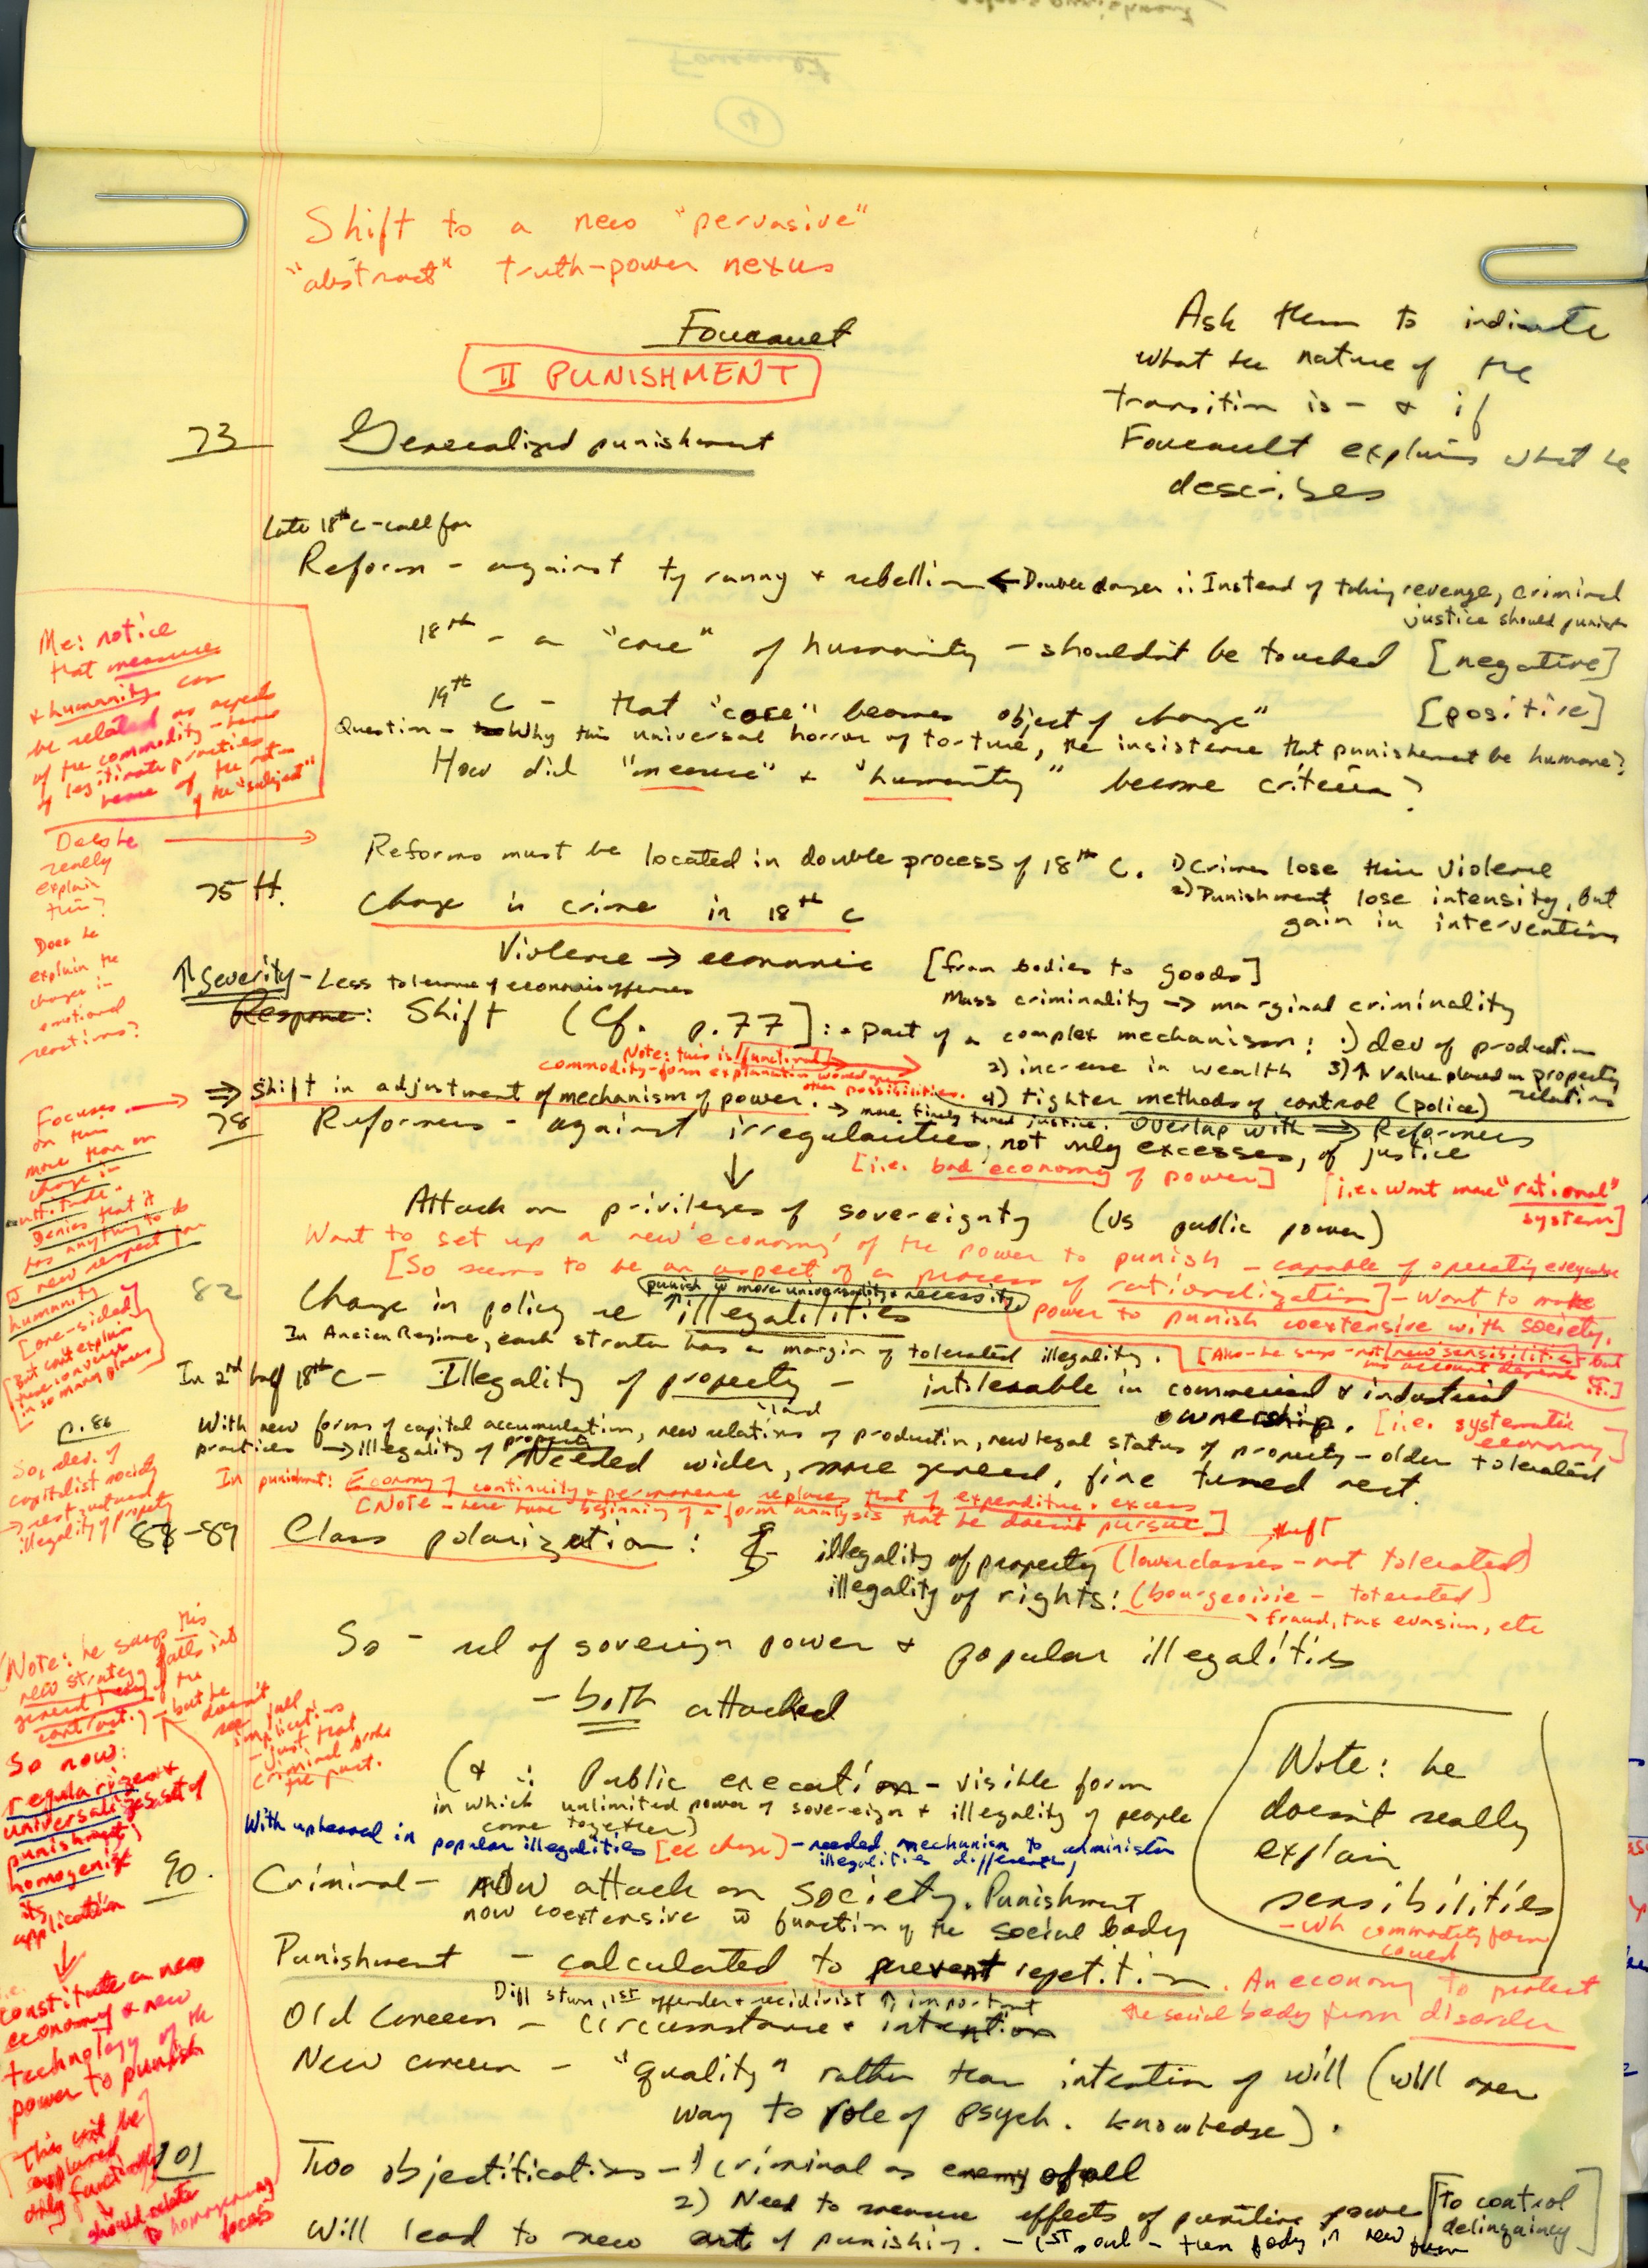 Shift to a new "pervasive"
"abstract" truth-power nexus
Foucault
II PUNISHMENT
Ask them to indicate
what the nature of the
transition is - & if
Foucault explains what he
describes
73 Generalized punishment
Late 18th C - call for
Reform - against tyranny & rebellion ← Double danger ∴ Instead of taking revenge, criminal
justice should punish
18th - a "core" of humanity - shouldn't be touched [negative]
19th C - that "core" becomes object of change" [positive]
Question - Why this universal horror of torture, the insistence that punishment be humane?
How did "measure" & "humanity" become criteria?
Me: notice
that measure
& humanity can
be related as aspects
of the commodity - hence
of legitimate practices
hence of the
of the "subject"
Does he
really
explain
this?
Does he
explain the
changes in
emotional
reactions?
Reforms must be located in double process of 18th C. 1) Crimes lose their violence
2) Punishment lose intensity, but
gain in intervention
75 ff. Change in crime in 18th C
Violence → economic [from bodies to goods]
Mass criminality → marginal criminality
↑ Severity - Less tolerance of economic offenses
Response: Shift (Cf. p. 77]: • part of a complex mechanism: 1) dev of production
2) increase in wealth 3) ↑ value placed on property
relations
4) tighter methods of control (police)
Note: this is functional
commodity-form explanation would open
other possibilities.
⇒ Shift in adjustment of mechanism of power. → more finely tuned justice. Overlap with ⇒ Reformers
78 Reformers - against irregularities, not only excesses, of justice
[i.e. bad economy of power] [i.e. want more "rational"
system]
Focuses
on this
more than on
change in
attitude.
Denies that it
has anything to do
w new respect for
humanity
[one-sided]
But can't explain
these convergences
in so many places
↓
Attack on privileges of sovereignty (vs public power)
Want to set up a new 'economy' of the power to punish - capable of operating everywhere
[So seems to be an aspect of a process of rationalization] - Want to make
power to punish coextensive with society.
punish w more universality & necessity
82 Change in policy re ↑ illegalities
In Ancien Regime, each strata has a margin of tolerated illegality. [Also - he says - not new sensibilities but
In 2nd half 18th C - Illegality of property - intolerable in commercial & industrial
ownership. [i.e. systematic
economy]
p. 86
So, dev. of
capitalist society
→ restructured
illegality of property
With new forms of capital accumulation, new relations of production, new legal status of property - older tolerated
practices → illegality of property Needed wider, more general, fine tuned rest.
In punishment: Economy of continuity & permanence replaces that of expenditure & excess
[NOTE - here have beginning of a form analysis that he doesn't pursue]
88-89 Class polarization: illegality of property (lower classes - not tolerated) theft
illegality of rights: (bourgeoisie - tolerated)
fraud, tax evasion, etc
So - rel of sovereign power & popular illegalities
- both attacked
(Note: he says this
new strategy falls into
general theory of the
contract.) - but he
doesn't
see full
implications
- just that
criminal broke
the pact.
(& ∴ Public execution - visible form
in which unlimited power of sovereign & illegality of people
come together)
Note: he
doesn't really
explain
sensibilities
- wh commodity form
could
With upheaval in popular illegalities [ec change] - needed mechanism to administer
illegalities differently
So now:
regularizes &
universalizes art of
punishment;
homogenize
its
application
↓
i.e.
constitute a new
economy & new
technology of the
power to punish
This can't be
explained
only functionally
should relate
to homogeneity
90. Criminal - now attack on society. Punishment
now coextensive w function of the social body
Punishment - calculated to prevent repetition. An economy to protect
the social body from disorder
Diff btwn 1st offender & recidivist ↑ important
Old Concern - circumstance & intention
New concern - "quality" rather than intention of will (will open
way to role of psych. knowledge).
101 Two objectifications - 1) criminal as enemy of all
2) Need to measure effects of punitive power [To control
delinquency
Will lead to new art of punishing. - 1st soul - then body in new form